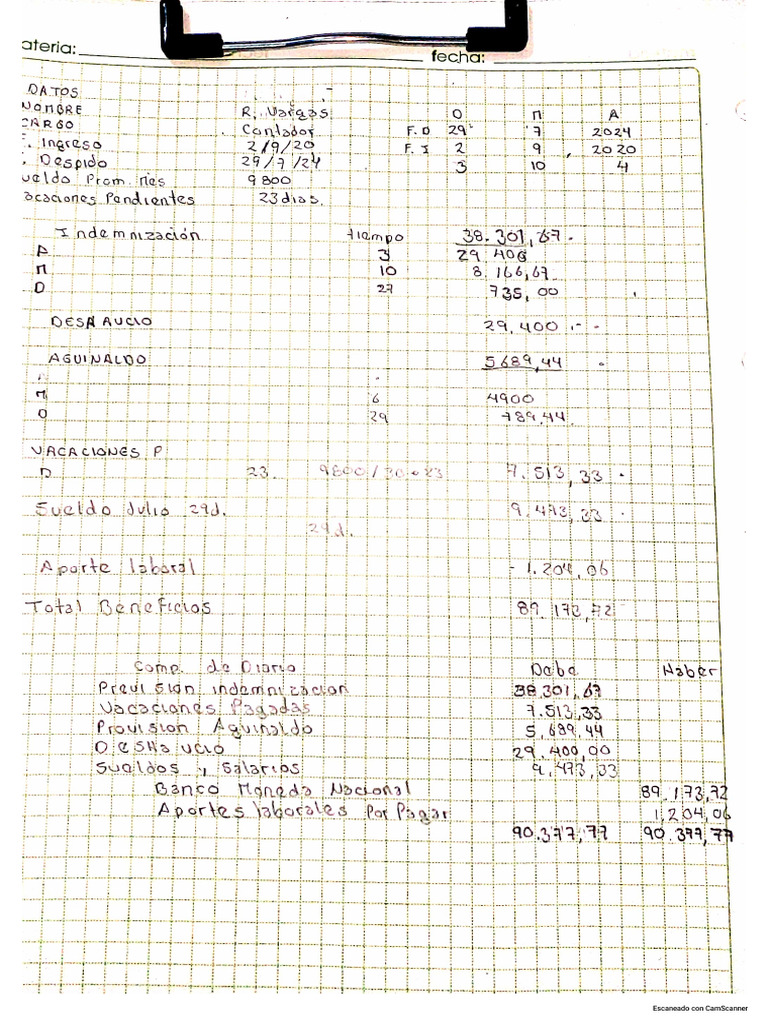 ateria: fecha:
DATOS
NOMBRE R. Vargas D M A
CARGO Contador F.D 29 7 2024
. Ingreso 2/9/20 F. I 2 9 2020
. Despido 29/7/24 3 10 4
ueldo Prom. Mes 9800
acaciones Pendientes 23 dias.
Indemnización tiempo 38.301,67.
A 3 29 400
M 10 8 166,67
D 27 735,00
DESHAUCIO 29,400
AGUINALDO 5689,44
M 6 4900
D 29 789,44
VACACIONES P
D 23. 9800/30*23 7.513,33
Sueldo Julio 29d. 9.473,33
29d.
Aporte laboral - 1.204,06
Total Beneficios 89.173,72
Comp. de Diario Debe Haber
Previsión indemnización 38.301,67
Vacaciones Pagadas 7.513,33
Provision Aguinaldo 5,689,44
DESHAUCIO 29.400,00
Sueldos y Salarios 9.473,33
Banco Moneda Nacional 89.173,72
Aportes laborales Por Pagar 1,204,06
90.377,77 90.377,77
Escaneado con CamScanner